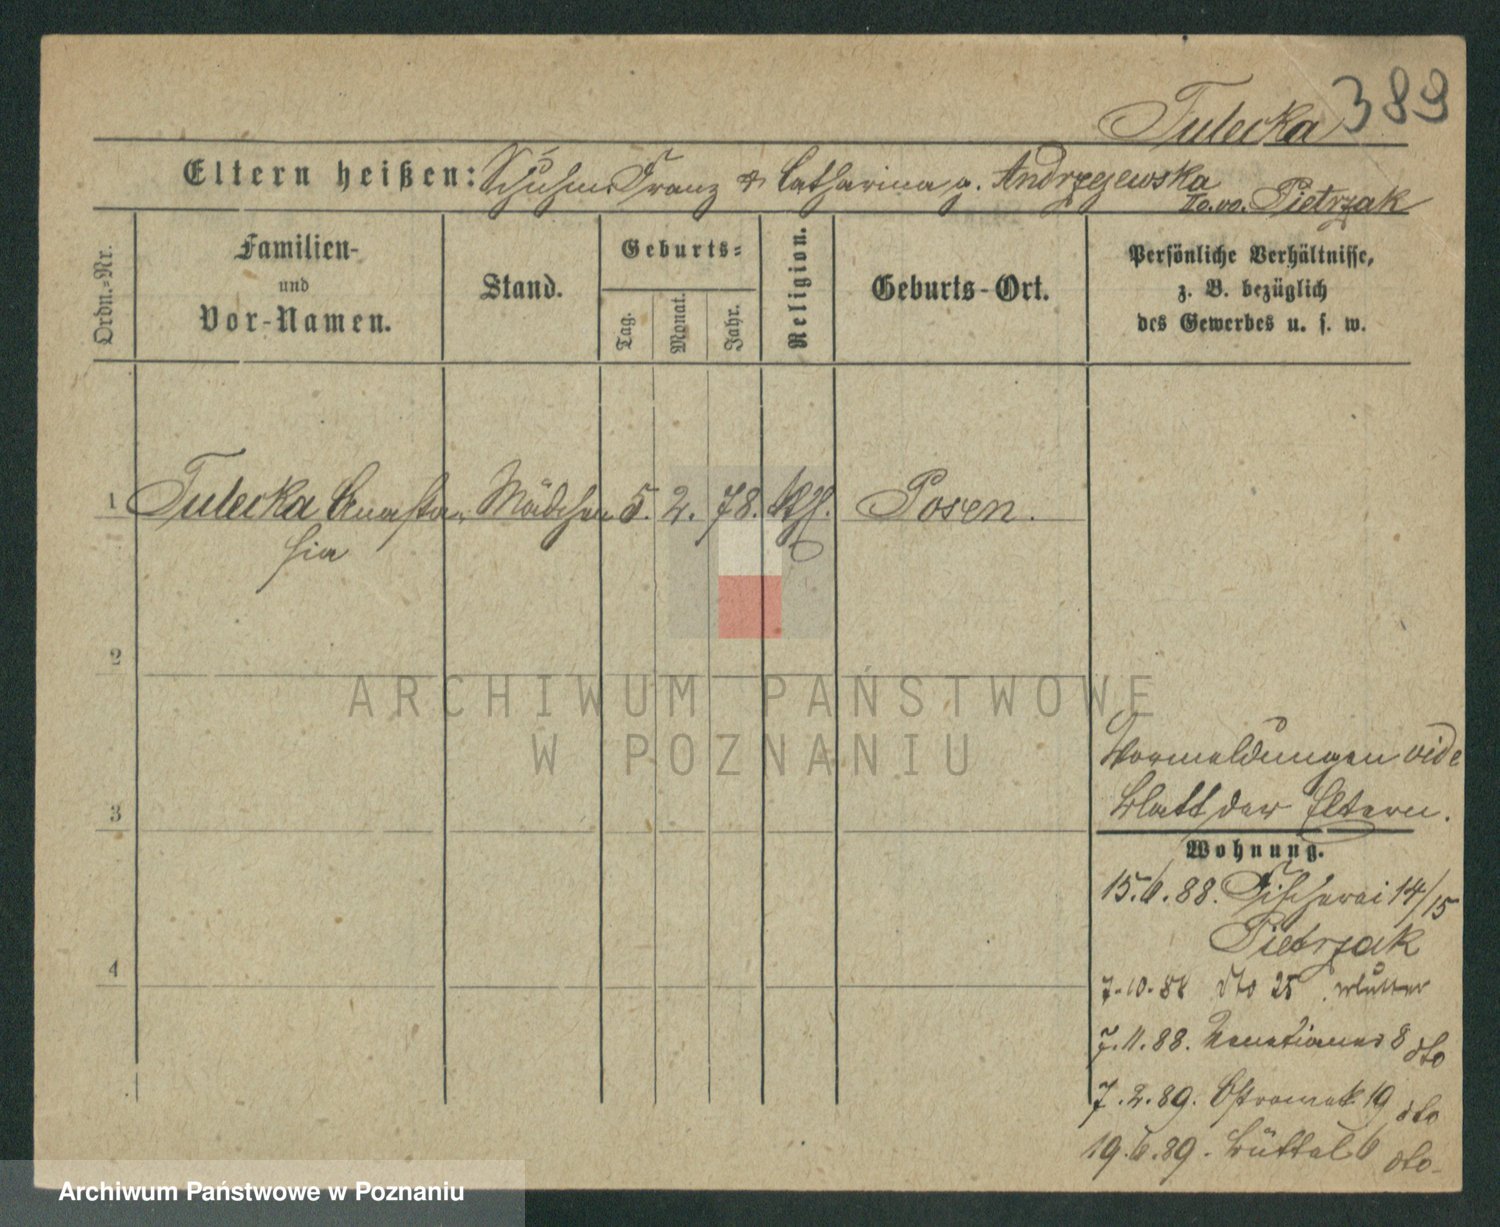 Tulecka 389
Eltern heißen: Schuhm. Franz & Catharina g. Andrzejewska
IIo. vo. Pietrzak
Ordn.-Nr.
Familien-
und
Vor-Namen.
Stand.
Geburts-
Tag.
Monat.
Jahr.
Religion.
Geburts-Ort.
Persönliche Verhältnisse,
z. B. bezüglich
des Gewerbes u. s. w.
1 Tulecka Anasta- Mädchen 5. 2. 78. kth. Posen.
sia
2
3
4
Vormeldungen vide
Blatt der Eltern.
Wohnung.
15.6.88. Fischerei 14/15
Pietrzak
7.10.88 dto 25 Mutter
7.11.88. Venetianer 8 dto
7.2.89. Ostrowek 19 dto
19.6.89. Büttel 6 dto.
ARCHIWUM PAŃSTWOWE
W POZNANIU
Archiwum Państwowe w Poznaniu